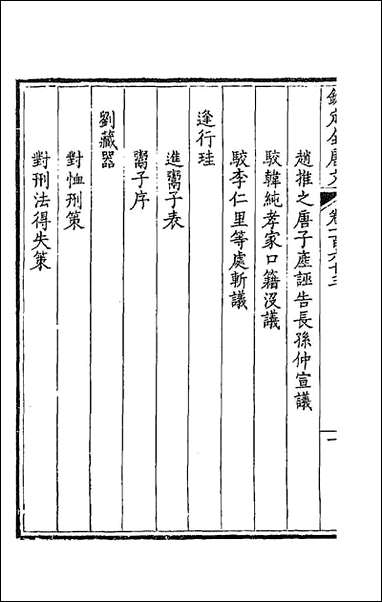 欽定全唐文 卷一百六十三 一
趙推之唐子產誣告長孫仲宣議
駮韓純孝家口籍沒議
駮李仁里等處斬議
逄行珪
進鬻子表
鬻子序
劉藏器
對恤刑策
對刑法得失策